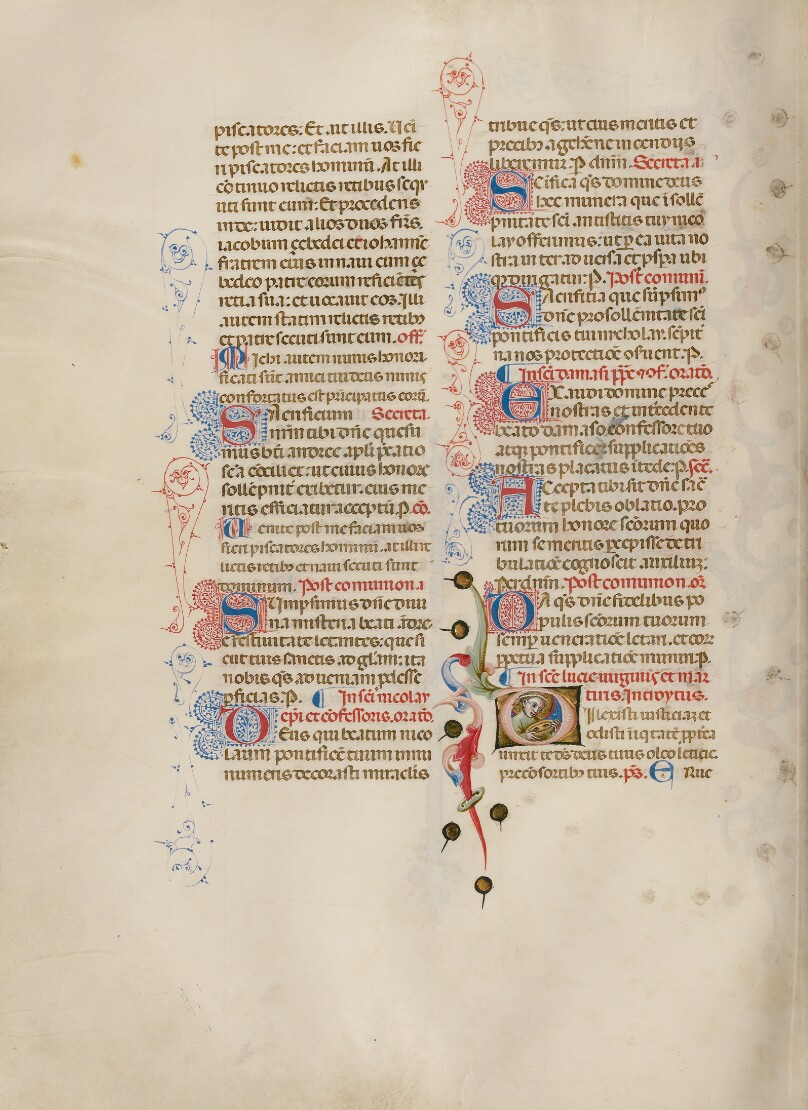 piscatores: Et ait illis. Ueni
te post me: et faciam uos fie
ri piscatores hominū. At illi
cōtinuo relictis retibus secut
uti sunt eum: Et procedens
inde: uidit alios duos frēs.
iacobum çebedei et iohannē
fratrem eius in naui cum çe
bedeo patre eorum reficiētes
retia sua: et uocauit eos. Illi
autem statim relictis retibȝ
et patre secuti sunt eum. off.
Michi autem nimis honori
ficati sūt amici tui deus nimis
confortatus est pricipatus eorū.
Sacrificium Secreta.
nrm tibi dn̄e quesu
mus bt̄i andree apl̄i p̄catio
sc̄a cōciliet: ut cuius honore
sollēpnit̄ exibetur. eius me
ritis efficiatur acceptū. P. cō.
Uenite post me faciam uos
fieri piscatores hominū. at illi re
lictis retibȝ et naui secuti sunt
dominum. Post comunion.
Sumpsimus dn̄e diui
na misteria beati ādre
e festiuitate letantes: que si
cut tuis sanctis ad glām: ita
nobis q̄s ad ueniam p̄desse
p̄ficias. P. In sc̄i nicolay
ep̄i et cōfessoris. oratō.
Deus qui beatum nico
laum pontificē tuum innu
meris decorasti miraclis
tribue q̄s: ut eius meritis et
precibȝ a gehēne incendijs
liberemur. P. dn̄m. Secreta.
Scifica q̄s domine deus
hec munera que ī sollē
pnitate sc̄i antistitis tuy nico
lay offerimus: ut p̄ ea uita no
stra inter aduersa et p̄spa ubi
q̄ dirigatur. P. Post comuni.
Sacrificia que sūpsimˀ
dn̄e pro sollēnitate sc̄i
pontificis tui nicholai. sēpit̄
na nos protectiōe ofuent. P.
In sc̄i damasi pp̄e et ɔf. oratō.
Exaudi domine preceˀ
nostras et intercedente
beato damaso confessore tuo
atqȝ pontifice supplicatiōes
nostras placatus ītēde. P. sec̄.
Accepta tibi sit dn̄e sac̄
te plebis oblatio. pro
tuorum honore sc̄orum quo
rum se meritis p̄cepisse de tri
bulatiōe cognoscit auxilium:
Per dn̄m. Post comunion. or̄
Da q̄s dn̄e fidelibus po
pulis sc̄orum tuorum
semp̄ ueneratiōe letari. et eorˀ
p̄petua supplicatiōe muniri. P.
In sc̄e lucie uirginis et mar
tiris. Introytus.
Dilexisti iusticiaȝ et
odisti iīqtatē p̄pt̄ea
unxit te dˢ deus tuus oleo leticie.
pre cōsortibȝ tuis. p̄s. Eruc